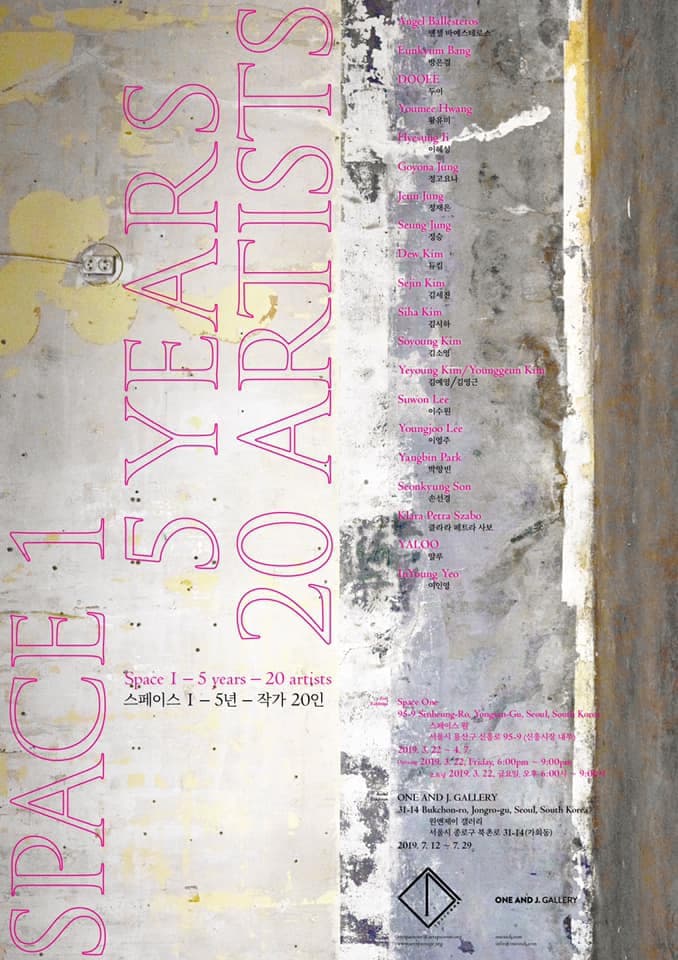 SPACE 1
5 YEARS
20 ARTISTS
Space I – 5 years – 20 artists
스페이스 I – 5년 – 작가 20인
Angel Ballesteros
앤젤 바예스테로스
Eunkyum Bang
방은겸
DOOEE
두이
Youmee Hwang
황유미
Hyesung Ii
이혜성
Goyona Jung
정고요나
Jeun Jung
정재은
Seung Jung
정승
Dew Kim
듀킴
Sejin Kim
김세진
Siha Kim
김시하
Soyoung Kim
김소영
Yeyoung Kim/Younggeun Kim
김예영/김영근
Suwon Lee
이수원
Youngjoo Lee
이영주
Yangbin Park
박양빈
Seonkyung Son
손선경
Klara Petra Szabo
클라라 페트라 사보
YALOO
얄루
InYoung Yeo
여인영
Space One
95-9 Sinheung-Ro, Yongsan-Gu, Seoul, South Korea
스페이스 원
서울시 용산구 신흥로 95-9 (신흥시장 내부)
2019. 3. 22 ~ 4. 7
2019. 3. 22, Friday, 6:00pm ~ 9:00pm
오프닝 2019. 3. 22, 금요일, 오후 6:00시 ~ 9:00시
ONE AND J. GALLERY
31-14 Bukchon-ro, Jongro-gu, Seoul, South Korea
원앤제이 갤러리
서울시 종로구 북촌로 31-14 (가회동)
2019. 7. 12 ~ 7. 29
ONE AND J. GALLERY